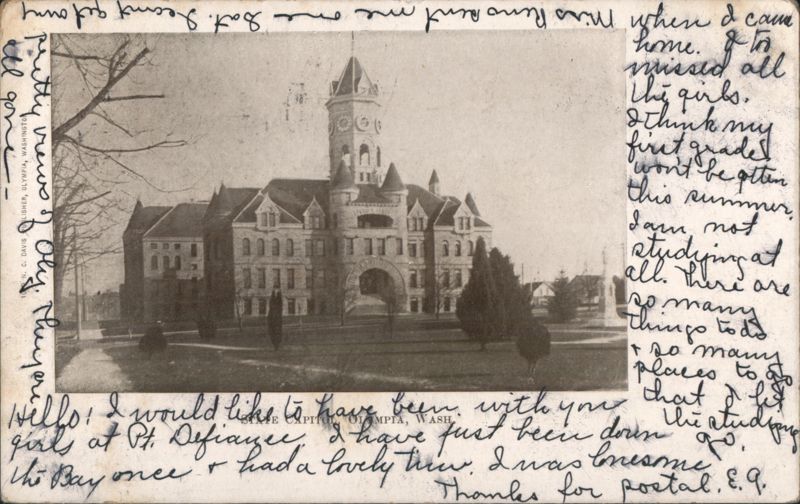 Hello! I would like to have been with you
STATE CAPITOL, OLYMPIA, WASH.
girls at Pt. Defiance. I have just been down
the Bay once & had a lovely time. I was lonesome
when I came
home. I too
missed all
the girls.
I think my
first grade
won't be gotten
this summer.
I am not
studying at
all. There are
so many
things to do
& so many
places to go
that I let
the studying
go.
Thanks for postal. E.G.
Miss Rem sent me one Sat. I cant get any
pretty views of Oly. They are
all gone—
C. DAVIS PUBLISHER, OLYMPIA, WASHINGTON